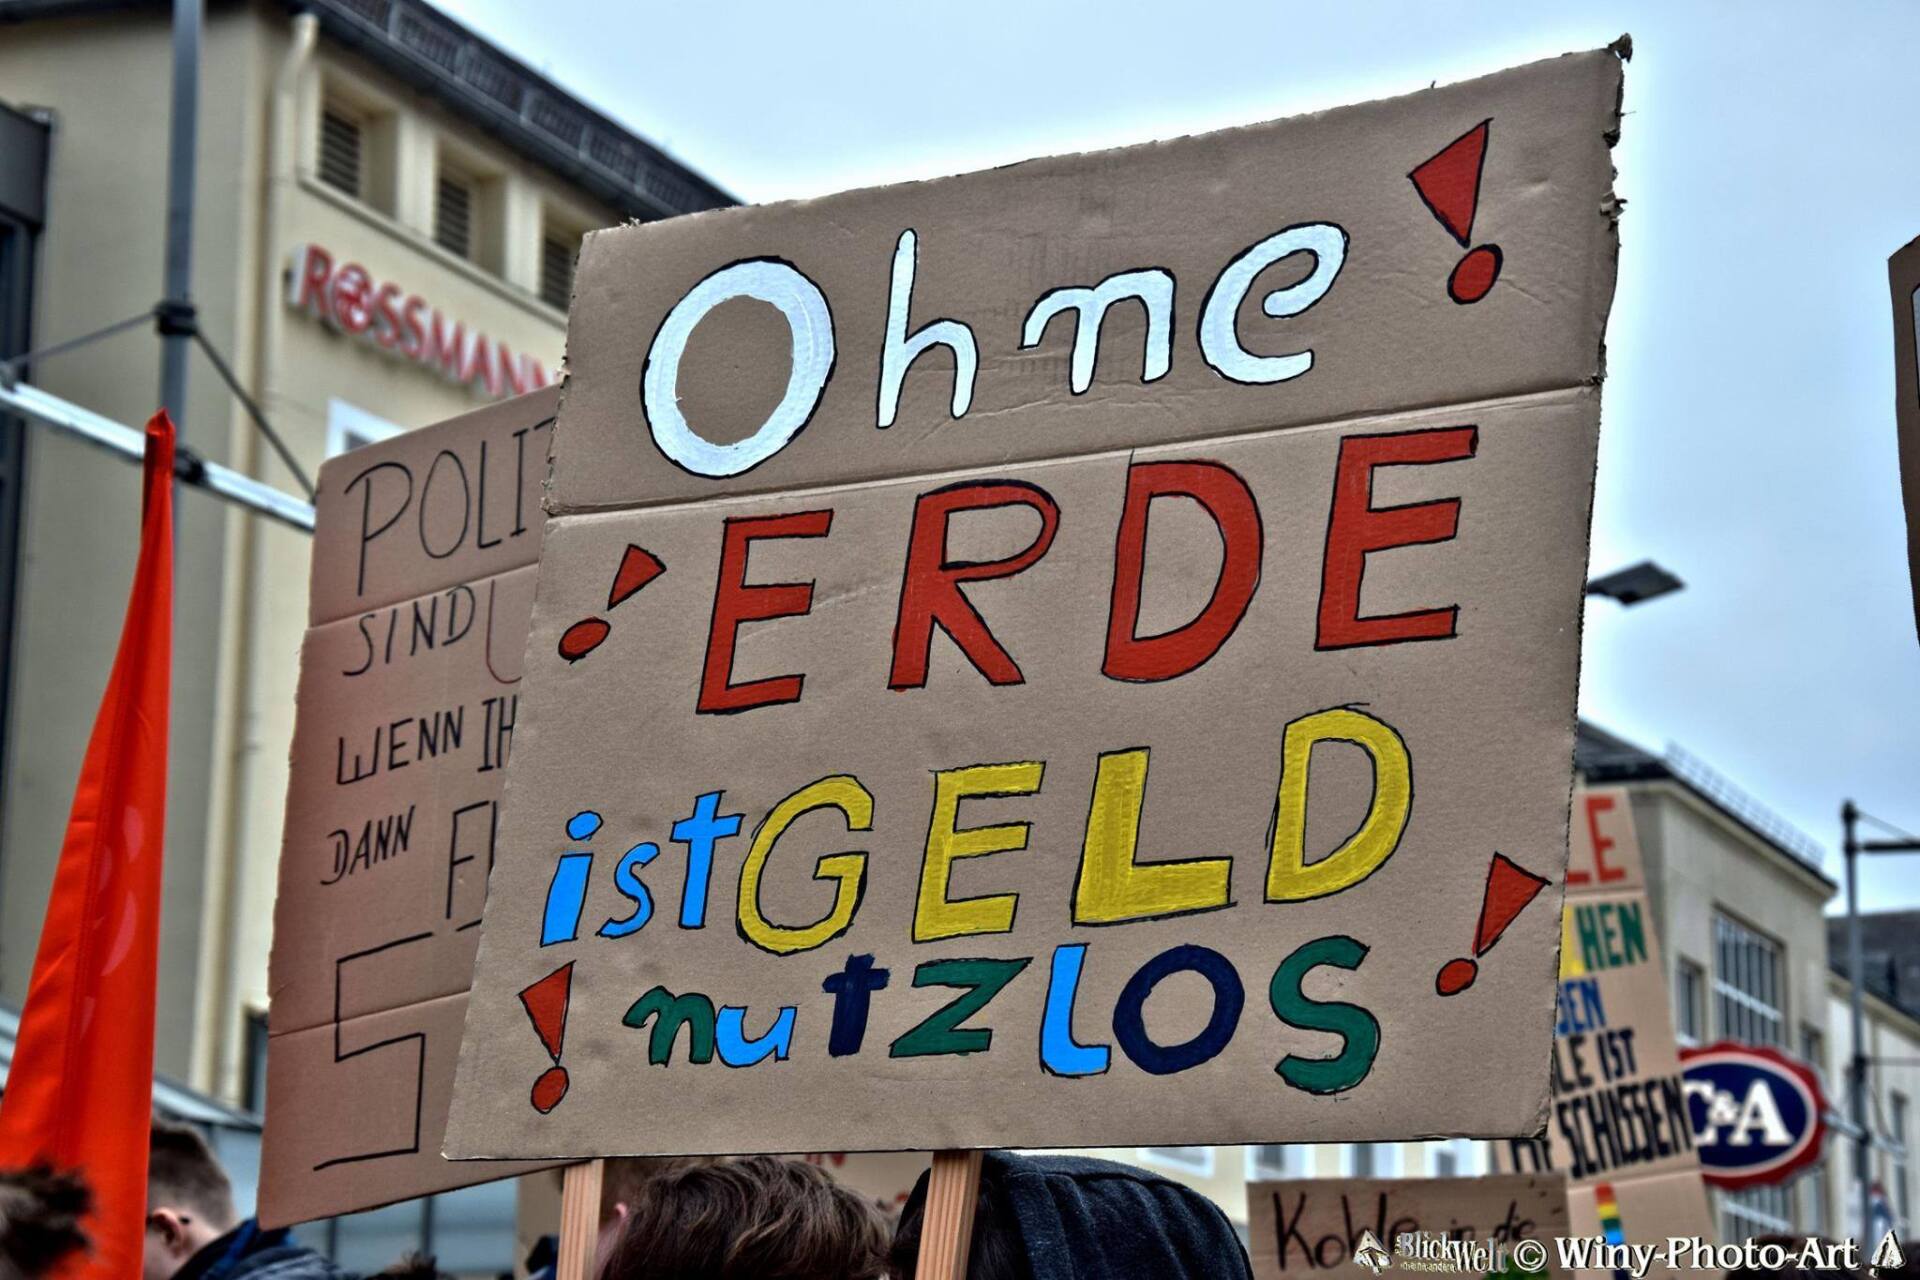 ROSSMANN
Ohne!
!ERDE
ist GELD
!nutzlos!
POLIT
SIND
WENN IH
DANN
S
LE
HEN
LE IST
SCHISSEN
C&A
Kohle in de
BlickWelt © Winy-Photo-Art